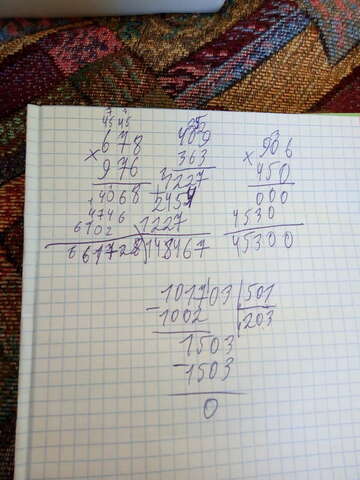 678
× 976
4068
4746
6102
661728
409
363
1227
2454
1227
148467
× 906
450
000
4530
45300
101703 | 501
- 1002 | 203
1503
- 1503
0